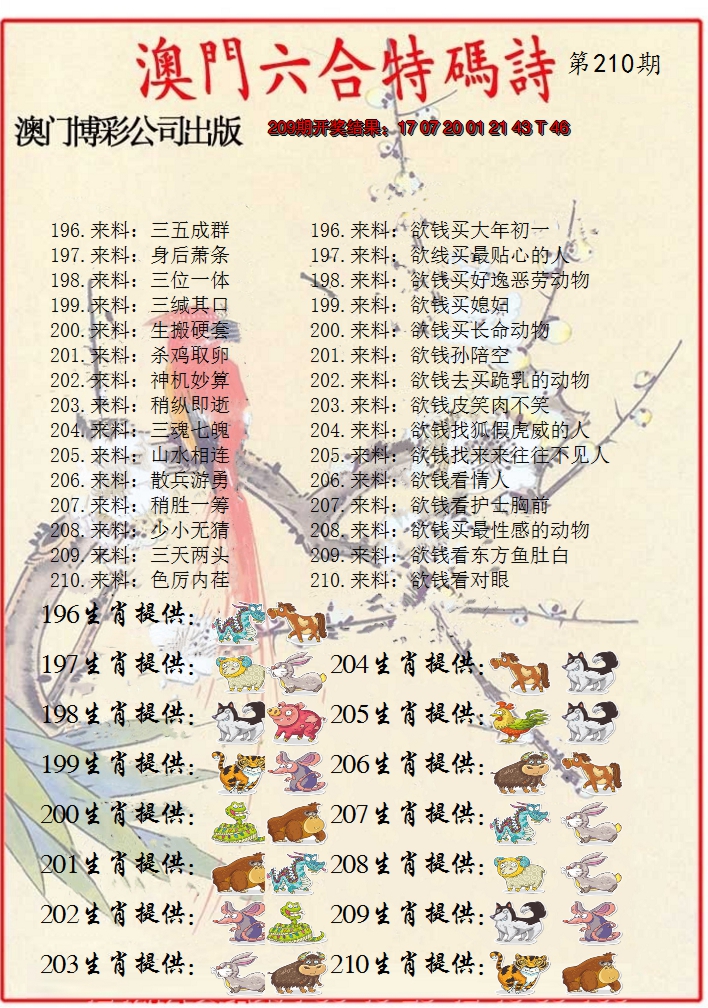 澳門六合特碼詩 第210期
澳门博彩公司出版 209期开奖结果：17 07 20 01 21 43 T 46
196.来料：三五成群 196.来料：欲钱买大年初一
197.来料：身后萧条 197.来料：欲线买最贴心的人
198.来料：三位一体 198.来料：欲钱买好逸恶劳动物
199.来料：三缄其口 199.来料：欲钱买媳妇
200.来料：生搬硬套 200.来料：欲钱买长命动物
201.来料：杀鸡取卵 201.来料：欲钱孙陪空
202.来料：神机妙算 202.来料：欲钱去买跪乳的动物
203.来料：稍纵即逝 203.来料：欲钱皮笑肉不笑
204.来料：三魂七魄 204.来料：欲钱找狐假虎威的人
205.来料：山水相连 205.来料：欲钱找来来往往不见人
206.来料：散兵游勇 206.来料：欲钱看情人
207.来料：稍胜一筹 207.来料：欲钱看护士胸前
208.来料：少小无猜 208.来料：欲钱买最性感的动物
209.来料：三天两头 209.来料：欲钱看东方鱼肚白
210.来料：色厉内荏 210.来料：欲钱看对眼
196生肖提供：
197生肖提供： 204生肖提供：
198生肖提供： 205生肖提供：
199生肖提供： 206生肖提供：
200生肖提供： 207生肖提供：
201生肖提供： 208生肖提供：
202生肖提供： 209生肖提供：
203生肖提供： 210生肖提供：